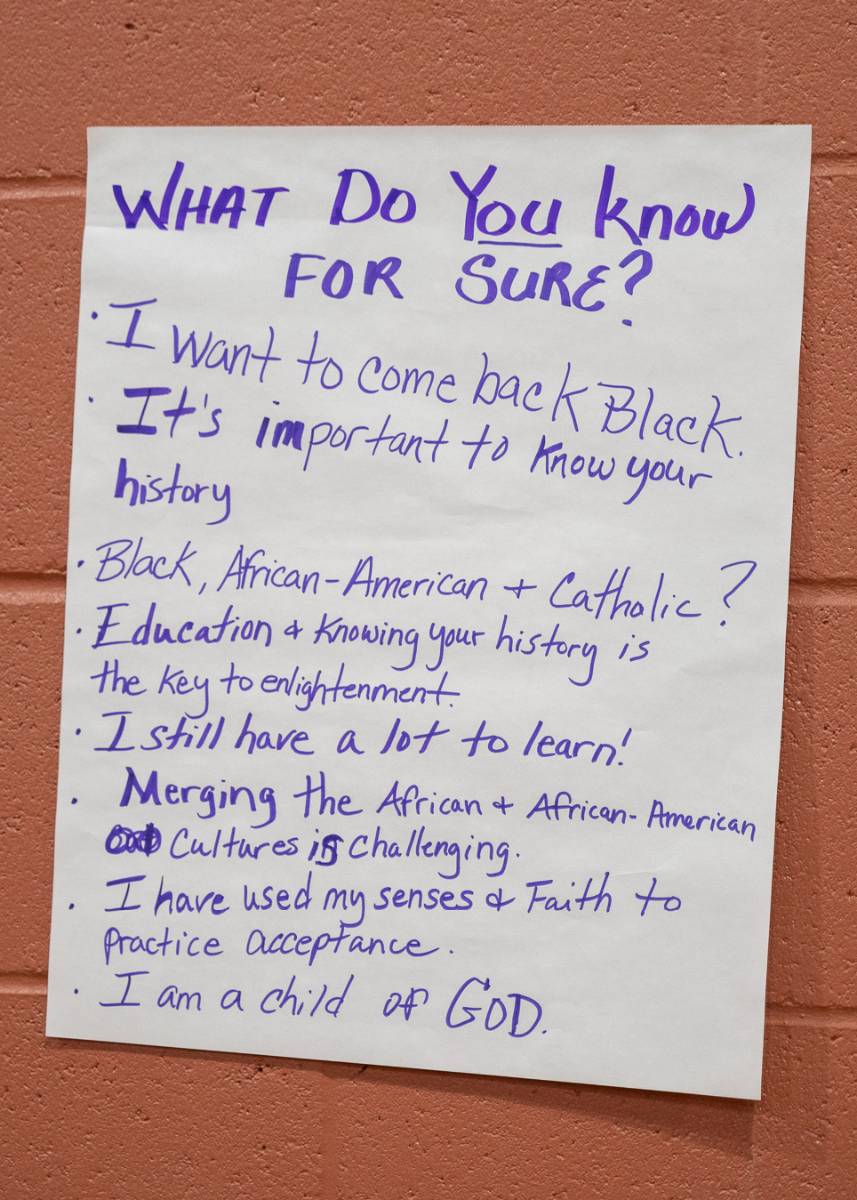 WHAT DO YOU know
FOR SURE?
· I want to come back Black.
· It's important to know your
history
· Black, African-American + Catholic?
· Education & Knowing your history is
the key to enlightenment.
· I still have a lot to learn!
· Merging the African & African-American
Cultures is challenging.
· I have used my senses & Faith to
practice acceptance.
· I am a child of GOD.